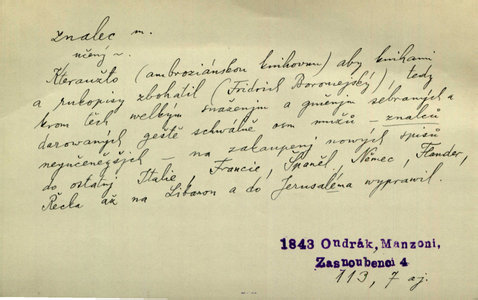 znalec m.
učený ~.
Kteraužto (ambroziánskou knihovnu) aby knihami
a rukopisy zbohatil (Fridrich Boromejský), tedy
krom těch welkým snažením a gměným sebraných a
darowaných geště schwálně osm mužů – znalců
neyučeněgších – na zakaupený nowých spisů
do ostatný Italie, Francie, Španěl, Němec, Flander,
Řecka až na Libanon a do Jerusaléma wyprawil.
1843 Ondrák, Manzoni,
Zasnoubenci 4
113, 7 aj.